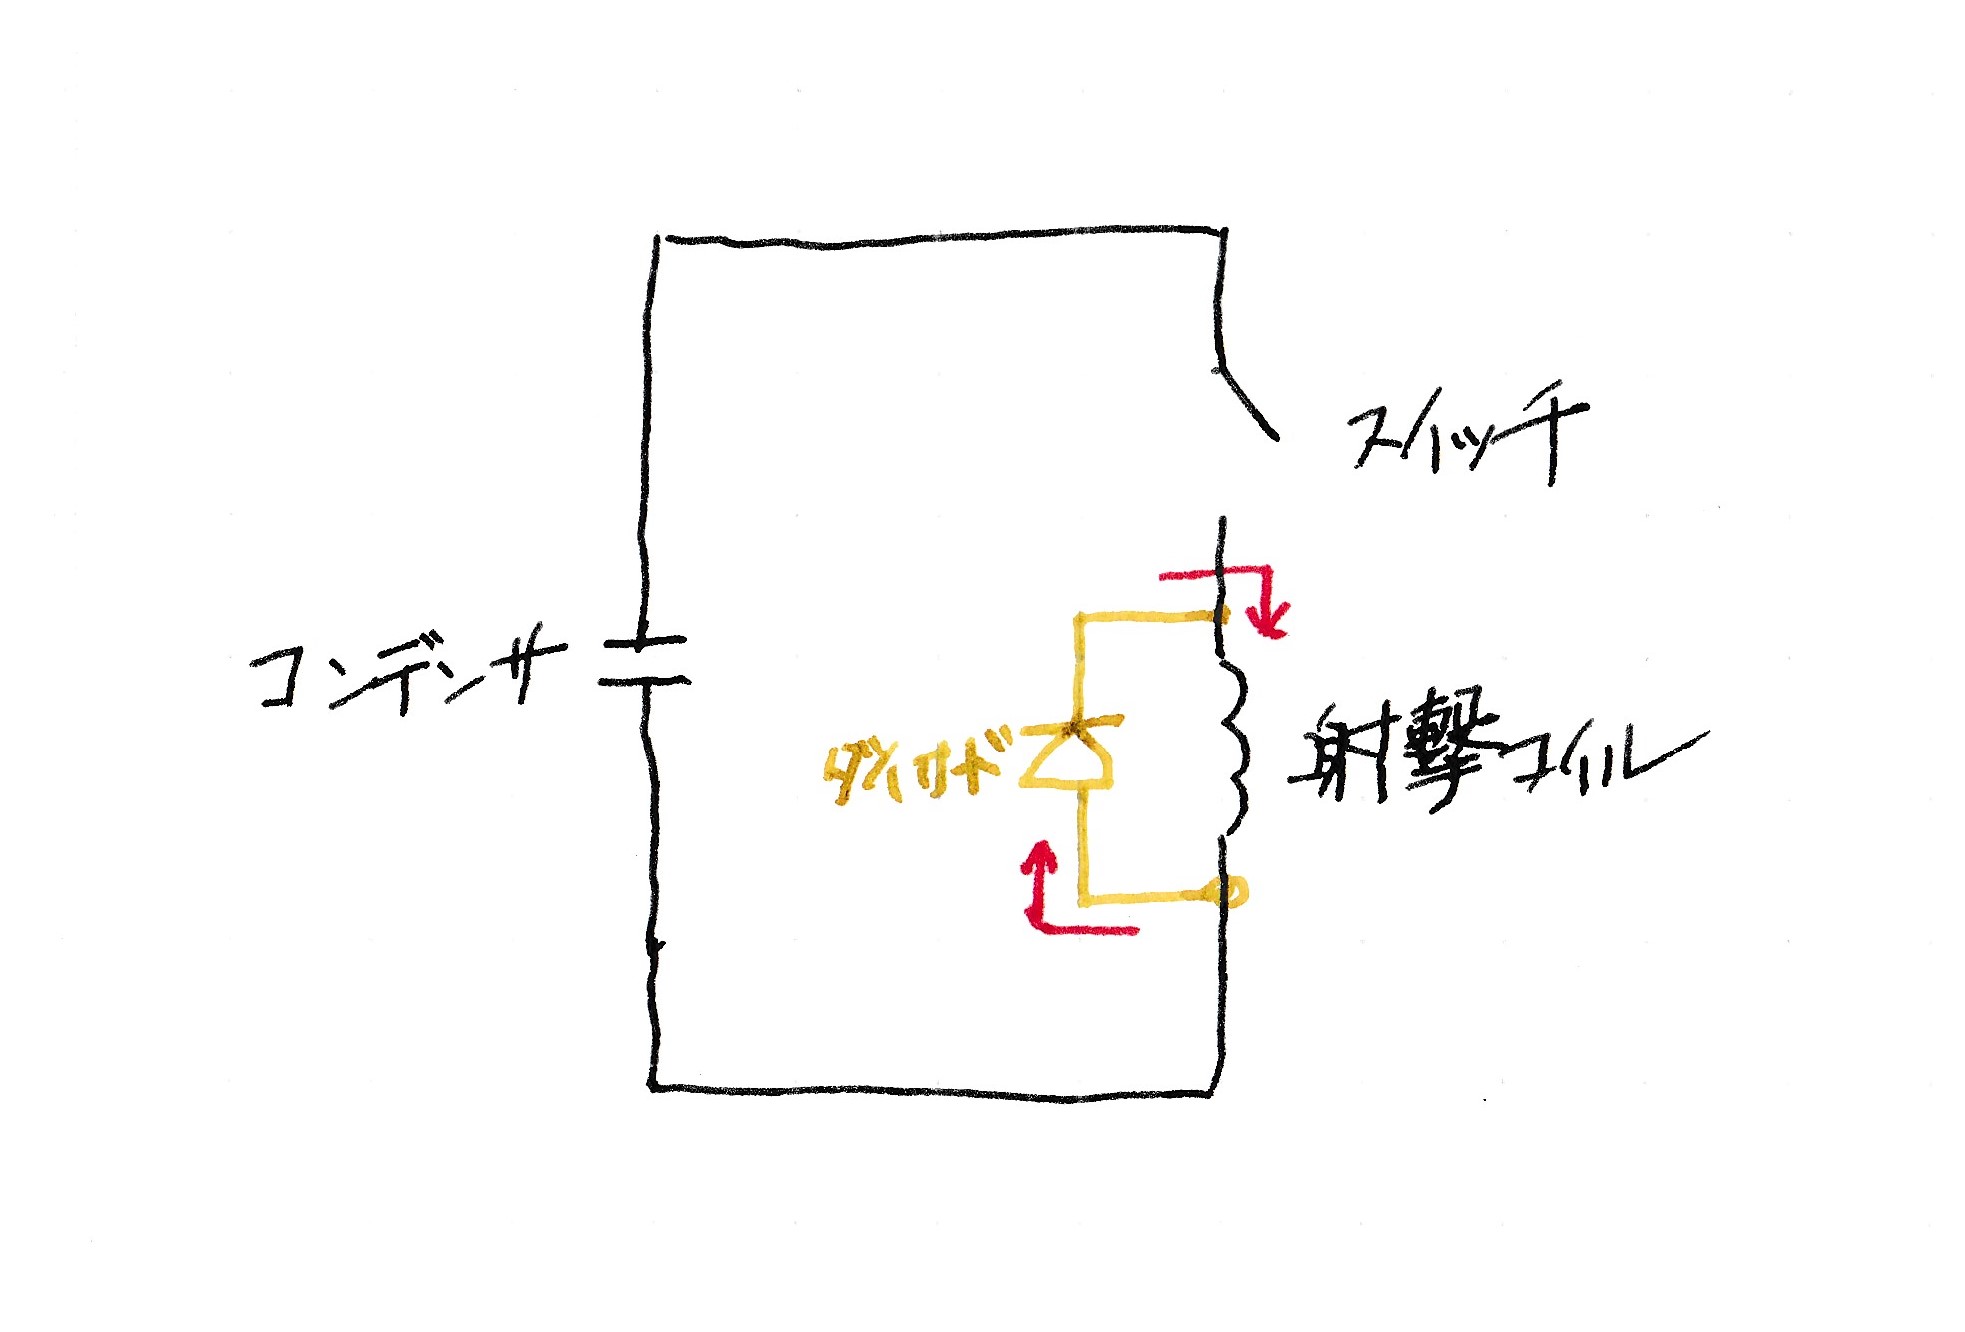 スイッチ
コンデンサ
ダイオード
射撃コイル